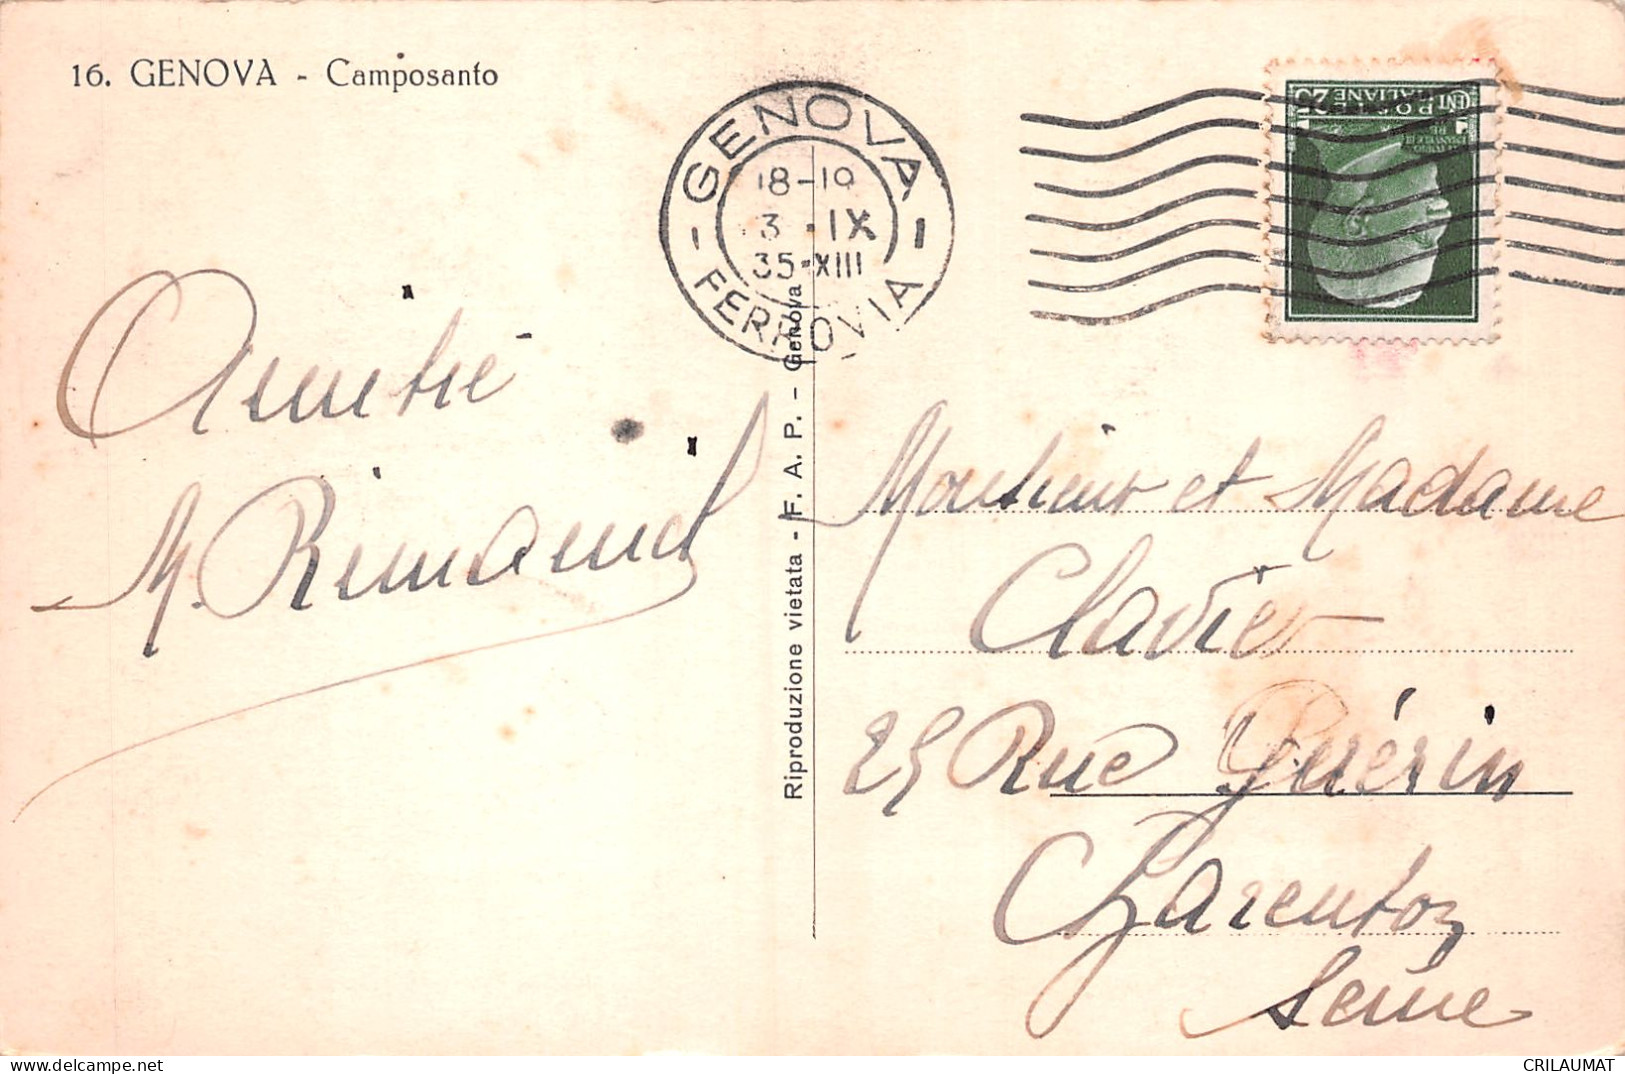 16. GENOVA - Camposanto
GENOVA
18-19
3 - IX
35-XIII
FERROVIA
CENT 25
POSTE
ITALIANE
Amitié
M. Rimaud
Riproduzione vietata - F. A. P. - Genova
Monsieur et Madame
Clavier
25 Rue Guérin
Charenton
Seine
CRILAUMAT